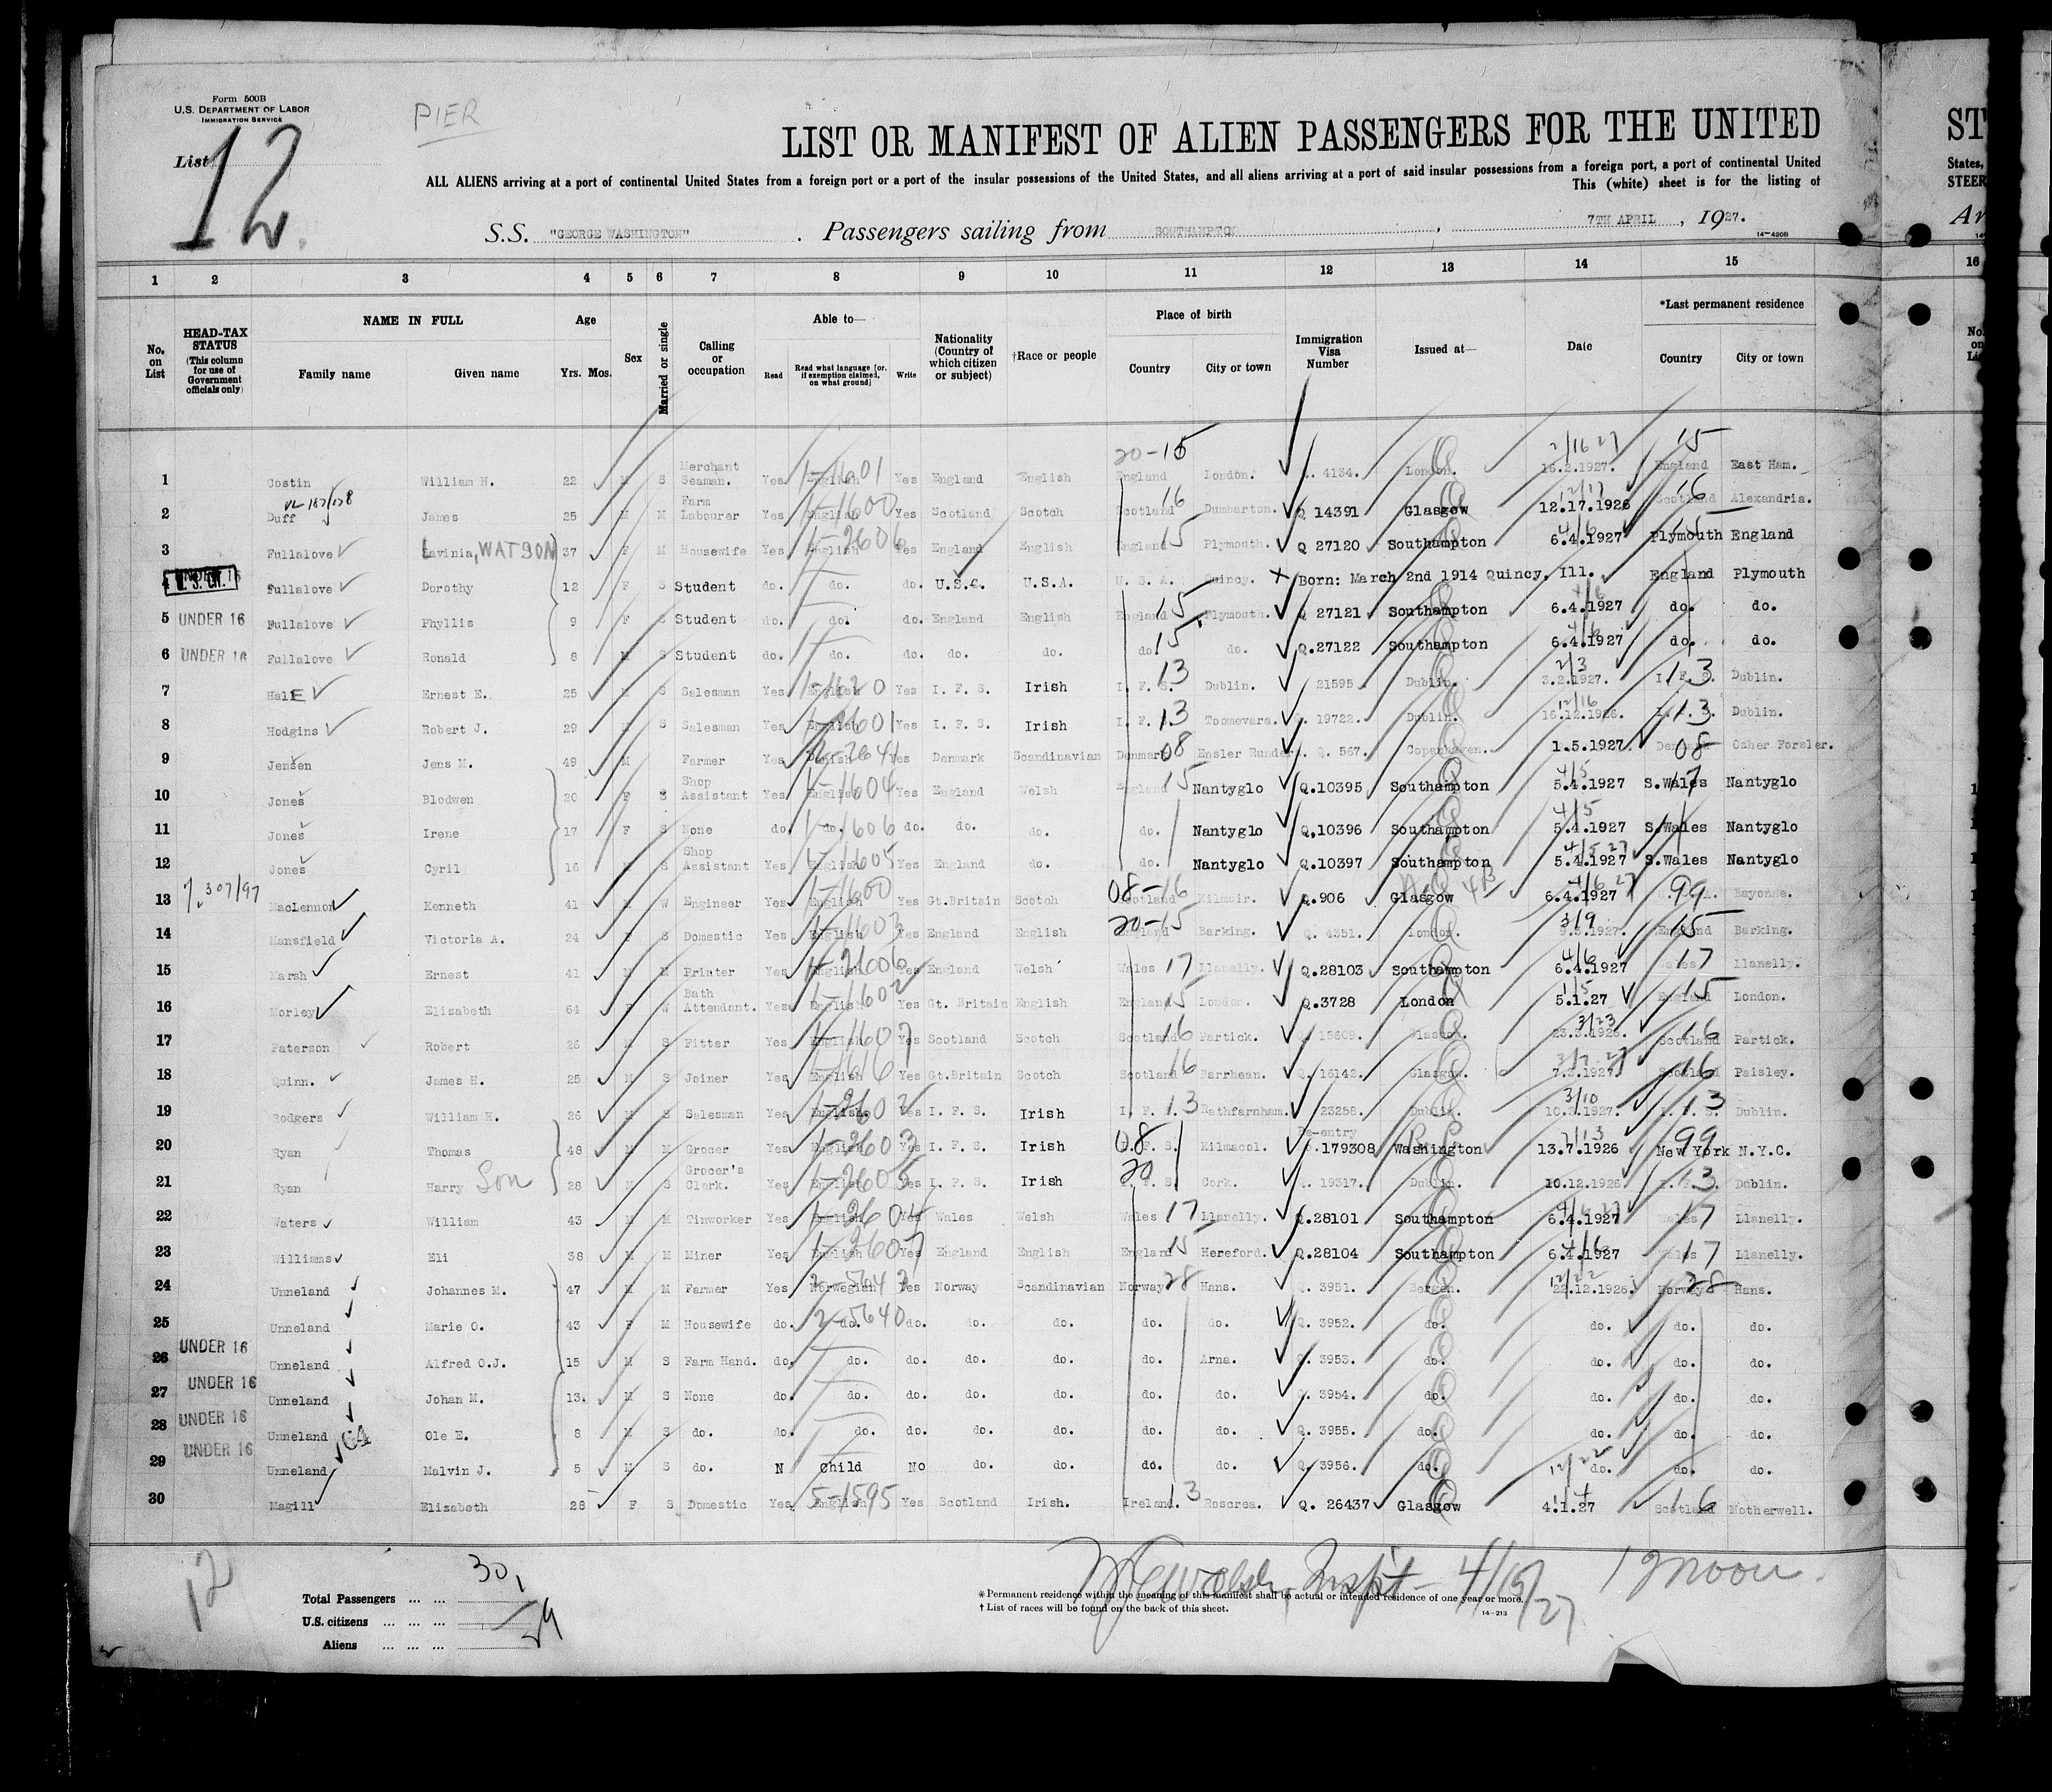 Form 500B
U.S. DEPARTMENT OF LABOR
IMMIGRATION SERVICE
PIER
List 12
LIST OR MANIFEST OF ALIEN PASSENGERS FOR THE UNITED
ALL ALIENS arriving at a port of continental United States from a foreign port or a port of the insular possessions of the United States, and all aliens arriving at a port of said insular possessions from a foreign port, a port of continental United
This (white) sheet is for the listing of
S.S. "GEORGE WASHINGTON". Passengers sailing from SOUTHAMPTON, 7TH APRIL, 1927.
14—430B
ST
States,
STEER
Ar
1 2 3 4 5 6 7 8 9 10 11 12 13 14 15 16
No. on List
HEAD-TAX STATUS (This column for use of Government officials only)
NAME IN FULL Family name Given name
Age Yrs. Mos.
Sex
Married or single
Calling or occupation
Able to— Read Read what language [or, if exemption claimed, on what ground] Write
Nationality (Country of which citizen or subject)
†Race or people
Place of birth Country City or town
Immigration Visa Number
Issued at—
Date
*Last permanent residence Country City or town
1 Costin William H. 22 M S Merchant Seaman. Yes English 1-1601 Yes England English England 20-15 London. 4134. London. 16.2.1927. 2/16 27 England 15 East Ham.
2 Duff James 25 M M Farm Labourer Yes English 1-1600 Yes Scotland Scotch Scotland 16 Dumbarton. Q 14391 Glasgow 12.17.1926 12/17 Scotland 16 Alexandria.
3 Fullalove Lavinia, WATSON 37 F M Housewife Yes English 1-2606 Yes England English England 15 Plymouth. Q 27120 Southampton 6.4.1927 4/6 Plymouth 15 England
4 U.S. CIT. Fullalove Dorothy 12 F S Student do. do. do. U.S.C. U.S.A. U. S. A. Quincy. X Born: March 2nd 1914 Quincy, Ill. England Plymouth
5 UNDER 16 Fullalove Phyllis 9 F S Student do. do. do. England English England 15 Plymouth. Q 27121 Southampton 6.4.1927 4/6 do. do.
6 UNDER 16 Fullalove Ronald 8 M S Student do. do. do. do. do. do. 15 do. Q.27122 Southampton 6.4.1927 4/6 do. do.
7 HalE Ernest E. 25 M S Salesman Yes English 1-1620 Yes I. F. S. Irish I. F. S. 13 Dublin. 21595 Dublin. 3.2.1927. 2/3 I. F. S. 13 Dublin.
8 Hodgins Robert J. 29 M S Salesman Yes English 1-2601 Yes I. F. S. Irish I. F. S. 13 Toomevara. 19722. Dublin. 16.12.1926. 12/16 I. F. S. 13 Dublin.
9 Jensen Jens M. 49 M Farmer Yes Danish 2-2641 Yes Denmark Scandinavian Denmark 08 Ensler Runder. Q. 567. Copenhagen. 1.5.1927. Denmark 08 Osher Forsler.
10 Jones Blodwen 20 F S Shop Assistant Yes English 1-1604 Yes England Welsh England 15 Nantyglo Q.10395 Southampton 5.4.1927 4/5 S.Wales 17 Nantyglo
11 Jones Irene 17 F S None do. do. 1-1606 do. do. do. do. Nantyglo Q.10396 Southampton 5.4.1927 4/5 S.Wales Nantyglo
12 Jones Cyril 16 M S Shop Assistant Yes English 1-1605 Yes England do. do. Nantyglo Q.10397 Southampton 5.4.1927 4/5 27 S.Wales Nantyglo
13 307/97 MacLennon Kenneth 41 M W Engineer Yes English 1-1600 Yes Gt.Britain Scotch Scotland 08-16 Kilmuir. Q.906 Glasgow 6.4.1927 4/6 27 99 Bayonne.
14 Mansfield Victoria A. 24 F S Domestic Yes English 1-1603 Yes England English England 20-15 Barking. Q. 4351. London. 9.3.1927. 3/9 England 15 Barking.
15 Marsh Ernest 41 M M Printer Yes English 1-2606 Yes England Welsh Wales 17 Llanelly. Q.28103 Southampton 6.4.1927 4/6 Wales 17 Llanelly.
16 Morley Elizabeth 64 F W Bath Attendant. Yes English 1-1602 Yes Gt. Britain English England 15 London. Q.3728 London 5.1.27 1/5 England 15 London.
17 Paterson Robert 26 M S Fitter Yes English 1-1607 Yes Scotland Scotch Scotland 16 Partick. 15609. Glasgow. 23.3.1926. 3/23 Scotland 16 Partick.
18 Quinn. James H. 25 M S Joiner Yes English 1-1616 Yes Gt.Britain Scotch Scotland 16 Barrhean. Q. 16142. Glasgow. 7.3.1927. 3/7 27 Scotland 16 Paisley.
19 Rodgers William H. 26 M S Salesman Yes English 1-2602 Yes I. F. S. Irish I. F. S. 13 Rathfarnham. 23258. Dublin. 10.3.1927. 3/10 I. F. S. 13 Dublin.
20 Ryan Thomas 48 M M Grocer Yes English 1-2603 Yes I. F. S. Irish I. F. S. 08 Kilmacol. Re-entry 179308 Washington 13.7.1926 7/13 New York 99 N.Y.C.
21 Ryan Harry Son 28 M S Grocer's Clerk. Yes English 1-2605 Yes I. F. S. Irish I. F. S. 20 Cork. 19317. Dublin. 10.12.1926 I. F. S. 13 Dublin.
22 Waters William 43 M M Tinworker Yes English 1-2604 Yes Wales Welsh Wales 17 Llanelly. Q.28101 Southampton 6.4.1927 4/6 27 Wales 17 Llanelly.
23 Williams Eli 38 M M Miner Yes English 1-2607 Yes England English England 15 Hereford. Q.28104 Southampton 6.4.1927 4/6 Wales 17 Llanelly.
24 Unneland Johannes M. 47 M M Farmer Yes Norwegian Yes Norway Scandinavian Norway 28 Hans. Q. 3951. Bergen. 22.12.1926. 12/22 Norway 28 Hans.
25 Unneland Marie O. 43 F M Housewife do. do. 2-5640 do. do. do. do. do. Q. 3952. do. do. do. do.
26 UNDER 16 Unneland Alfred O.J. 15 M S Farm Hand. do. do. do. do. do. do. Arna. Q. 3953. do. do. do. do.
27 UNDER 16 Unneland Johan M. 13. M S None do. do. do. do. do. do. do. Q. 3954. do. do. do. do.
28 UNDER 16 Unneland Ole E. 8 M S do. do. do. do. do. do. do. do. Q. 3955. do. do. do. do.
29 UNDER 16 Unneland Malvin J. 5 M S do. N Child No do. do. do. do. Q. 3956. do. do. 12/22 do. do.
30 Magill Elizabeth 28 F S Domestic Yes English 5-1595 Yes Scotland Irish. Ireland. 13 Roscrea. Q. 26437 Glasgow 4.1.27 Scotland 16 Motherwell.
12
Total Passengers ... ... 30
U.S. citizens ... ... ... 1
Aliens ... ... ... 29
Inspt 4/15/27 12 noon.
* Permanent residence within the meaning of this manifest shall be actual or intended residence of one year or more.
† List of races will be found on the back of this sheet.
14—213